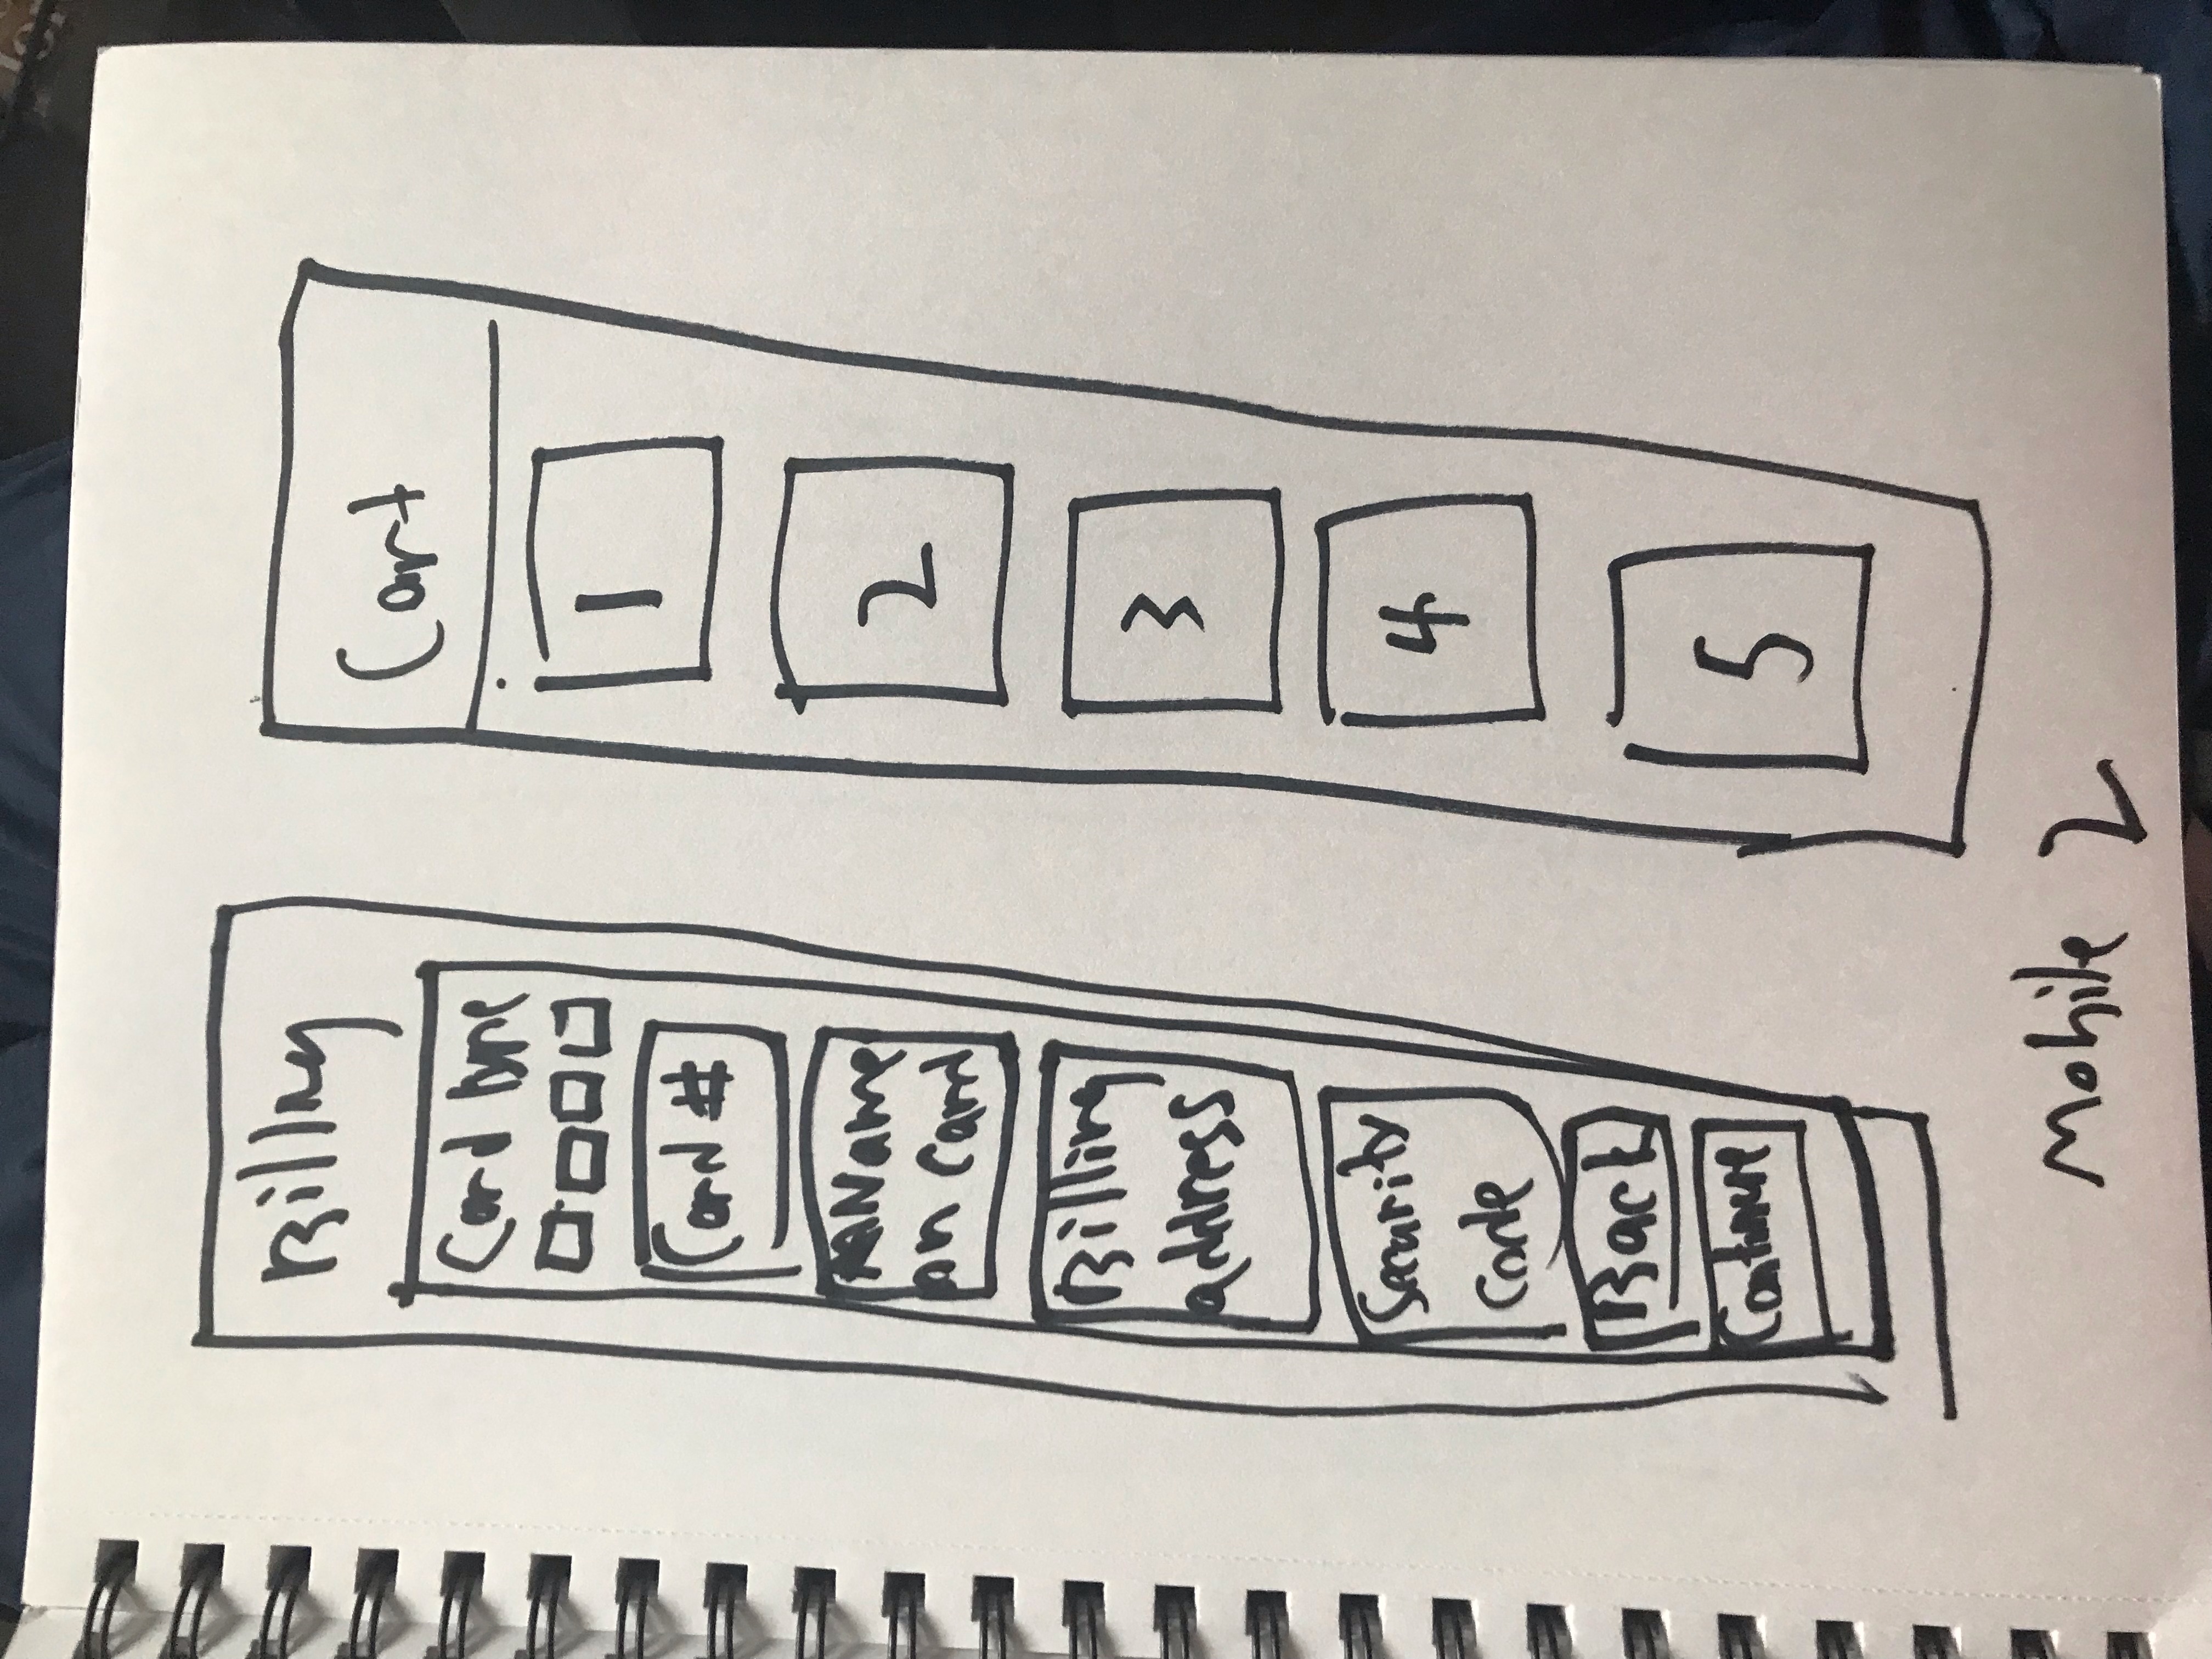 Billing
Card type
Card #
Name
on Card
Billing
address
Security
Code
Back
Continue
Cart
1
2
3
4
5
Mobile 2